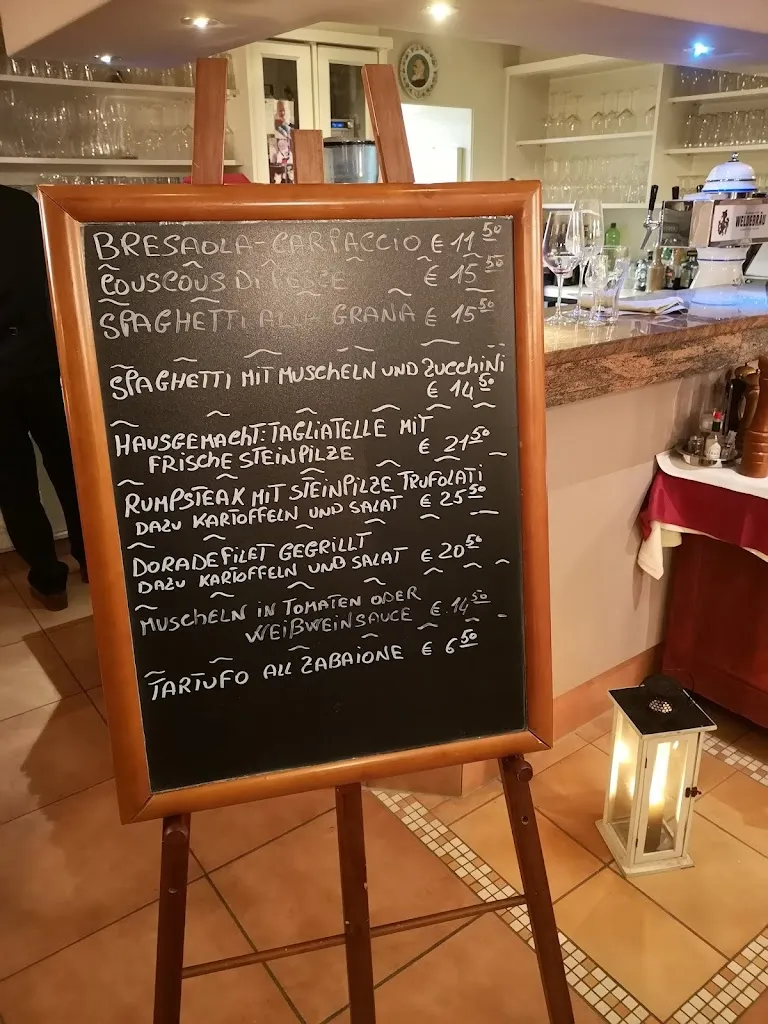 BRESAOLA-CARPACCIO € 11 50
COUSCOUS DI PESCE € 15 50
SPAGHETTI GRANA € 15 50
SPAGHETTI MIT MUSCHELN UND ZUCCHINI
€ 14 50
HAUSGEMACHT: TAGLIATELLE MIT
FRISCHE STEINPILZE € 21 50
RUMPSTEAK MIT STEINPILZE TRUFOLATI
DAZU KARTOFFELN UND SALAT € 25 50
DORADEFILET GEGRILLT
DAZU KARTOFFELN UND SALAT € 20 50
MUSCHELN IN TOMATEN ODER
WEIßWEINSAUCE € 14 50
TARTUFO ALL ZABAIONE € 6 50
WELDEBRÄU